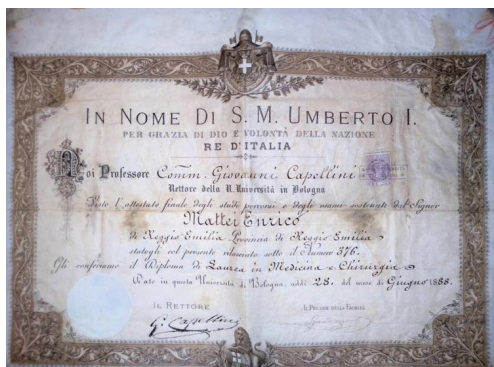 IN NOME DI S. M. UMBERTO I.
PER GRAZIA DI DIO E VOLONTÀ DELLA NAZIONE
RE D'ITALIA
Noi Professore Comm. Giovanni Capellini
Rettore della R. Università in Bologna
Visto l'attestato finale degli studi percorsi e degli esami sostenuti dal Signor
Mattei Enrico
di Reggio Emilia Provincia di Reggio Emilia
statogli col presente rilasciato sotto il Numero 376.
Gli conferiamo il Diploma di Laurea in Medicina e Chirurgia
Dato in questa Università di Bologna, addì 28. del mese di Giugno 1888.
IL RETTORE
IL PRESIDE DELLA FACOLTÀ
G. Capellini